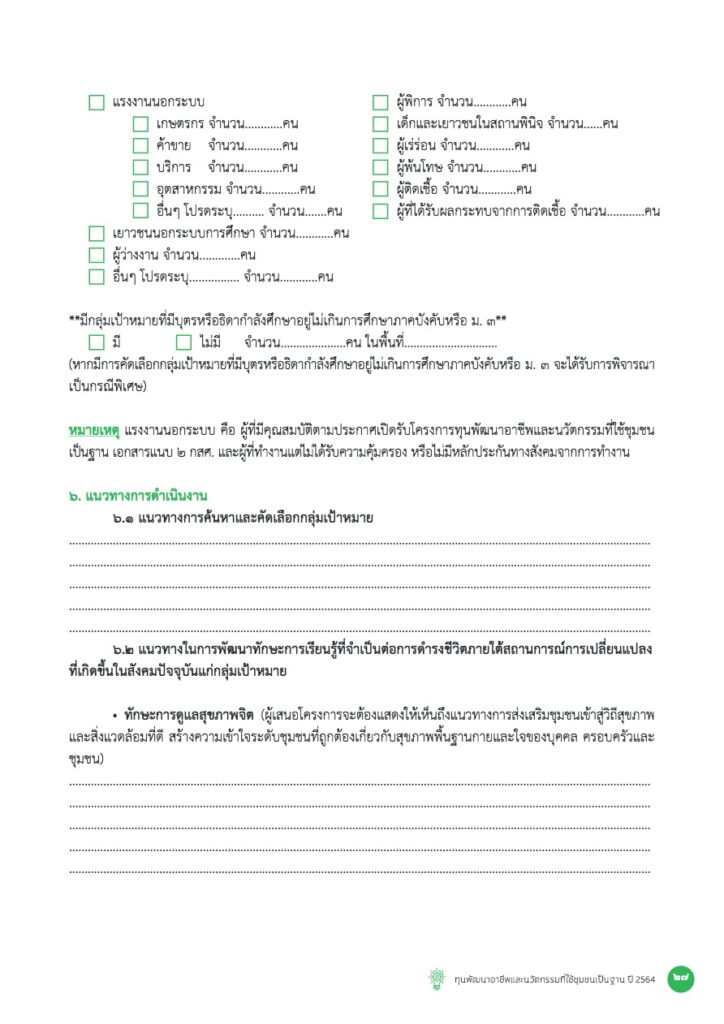 แรงงานนอกระบบ
เกษตรกร จำนวน............คน
ค้าขาย จำนวน............คน
บริการ จำนวน............คน
อุตสาหกรรม จำนวน............คน
อื่นๆ โปรดระบุ.......... จำนวน.......คน
เยาวชนนอกระบบการศึกษา จำนวน............คน
ผู้ว่างงาน จำนวน.............คน
อื่นๆ โปรดระบุ................ จำนวน............คน
ผู้พิการ จำนวน............คน
เด็กและเยาวชนในสถานพินิจ จำนวน......คน
ผู้เร่ร่อน จำนวน............คน
ผู้พ้นโทษ จำนวน............คน
ผู้ติดเชื้อ จำนวน............คน
ผู้ที่ได้รับผลกระทบจากการติดเชื้อ จำนวน............คน
**มีกลุ่มเป้าหมายที่มีบุตรหรือธิดากำลังศึกษาอยู่ไม่เกินการศึกษาภาคบังคับหรือ ม. ๓**
มี ไม่มี จำนวน.....................คน ในพื้นที่..............................
(หากมีการคัดเลือกกลุ่มเป้าหมายที่มีบุตรหรือธิดากำลังศึกษาอยู่ไม่เกินการศึกษาภาคบังคับหรือ ม. ๓ จะได้รับการพิจารณา
เป็นกรณีพิเศษ)
หมายเหตุ แรงงานนอกระบบ คือ ผู้ที่มีคุณสมบัติตามประกาศเปิดรับโครงการทุนพัฒนาอาชีพและนวัตกรรมที่ใช้ชุมชน
เป็นฐาน เอกสารแนบ ๒ กสศ. และผู้ที่ทำงานแต่ไม่ได้รับความคุ้มครอง หรือไม่มีหลักประกันทางสังคมจากการทำงาน
๖. แนวทางการดำเนินงาน
๖.๑ แนวทางการค้นหาและคัดเลือกกลุ่มเป้าหมาย
๖.๒ แนวทางในการพัฒนาทักษะการเรียนรู้ที่จำเป็นต่อการดำรงชีวิตภายใต้สถานการณ์การเปลี่ยนแปลง
ที่เกิดขึ้นในสังคมปัจจุบันแก่กลุ่มเป้าหมาย
▪ ทักษะการดูแลสุขภาพจิต (ผู้เสนอโครงการจะต้องแสดงให้เห็นถึงแนวทางการส่งเสริมชุมชนเข้าสู่วิถีสุขภาพ
และสิ่งแวดล้อมที่ดี สร้างความเข้าใจระดับชุมชนที่ถูกต้องเกี่ยวกับสุขภาพพื้นฐานกายและใจของบุคคล ครอบครัวและ
ชุมชน)
ทุนพัฒนาอาชีพและนวัตกรรมที่ใช้ชุมชนเป็นฐาน ปี 2564
๒๗